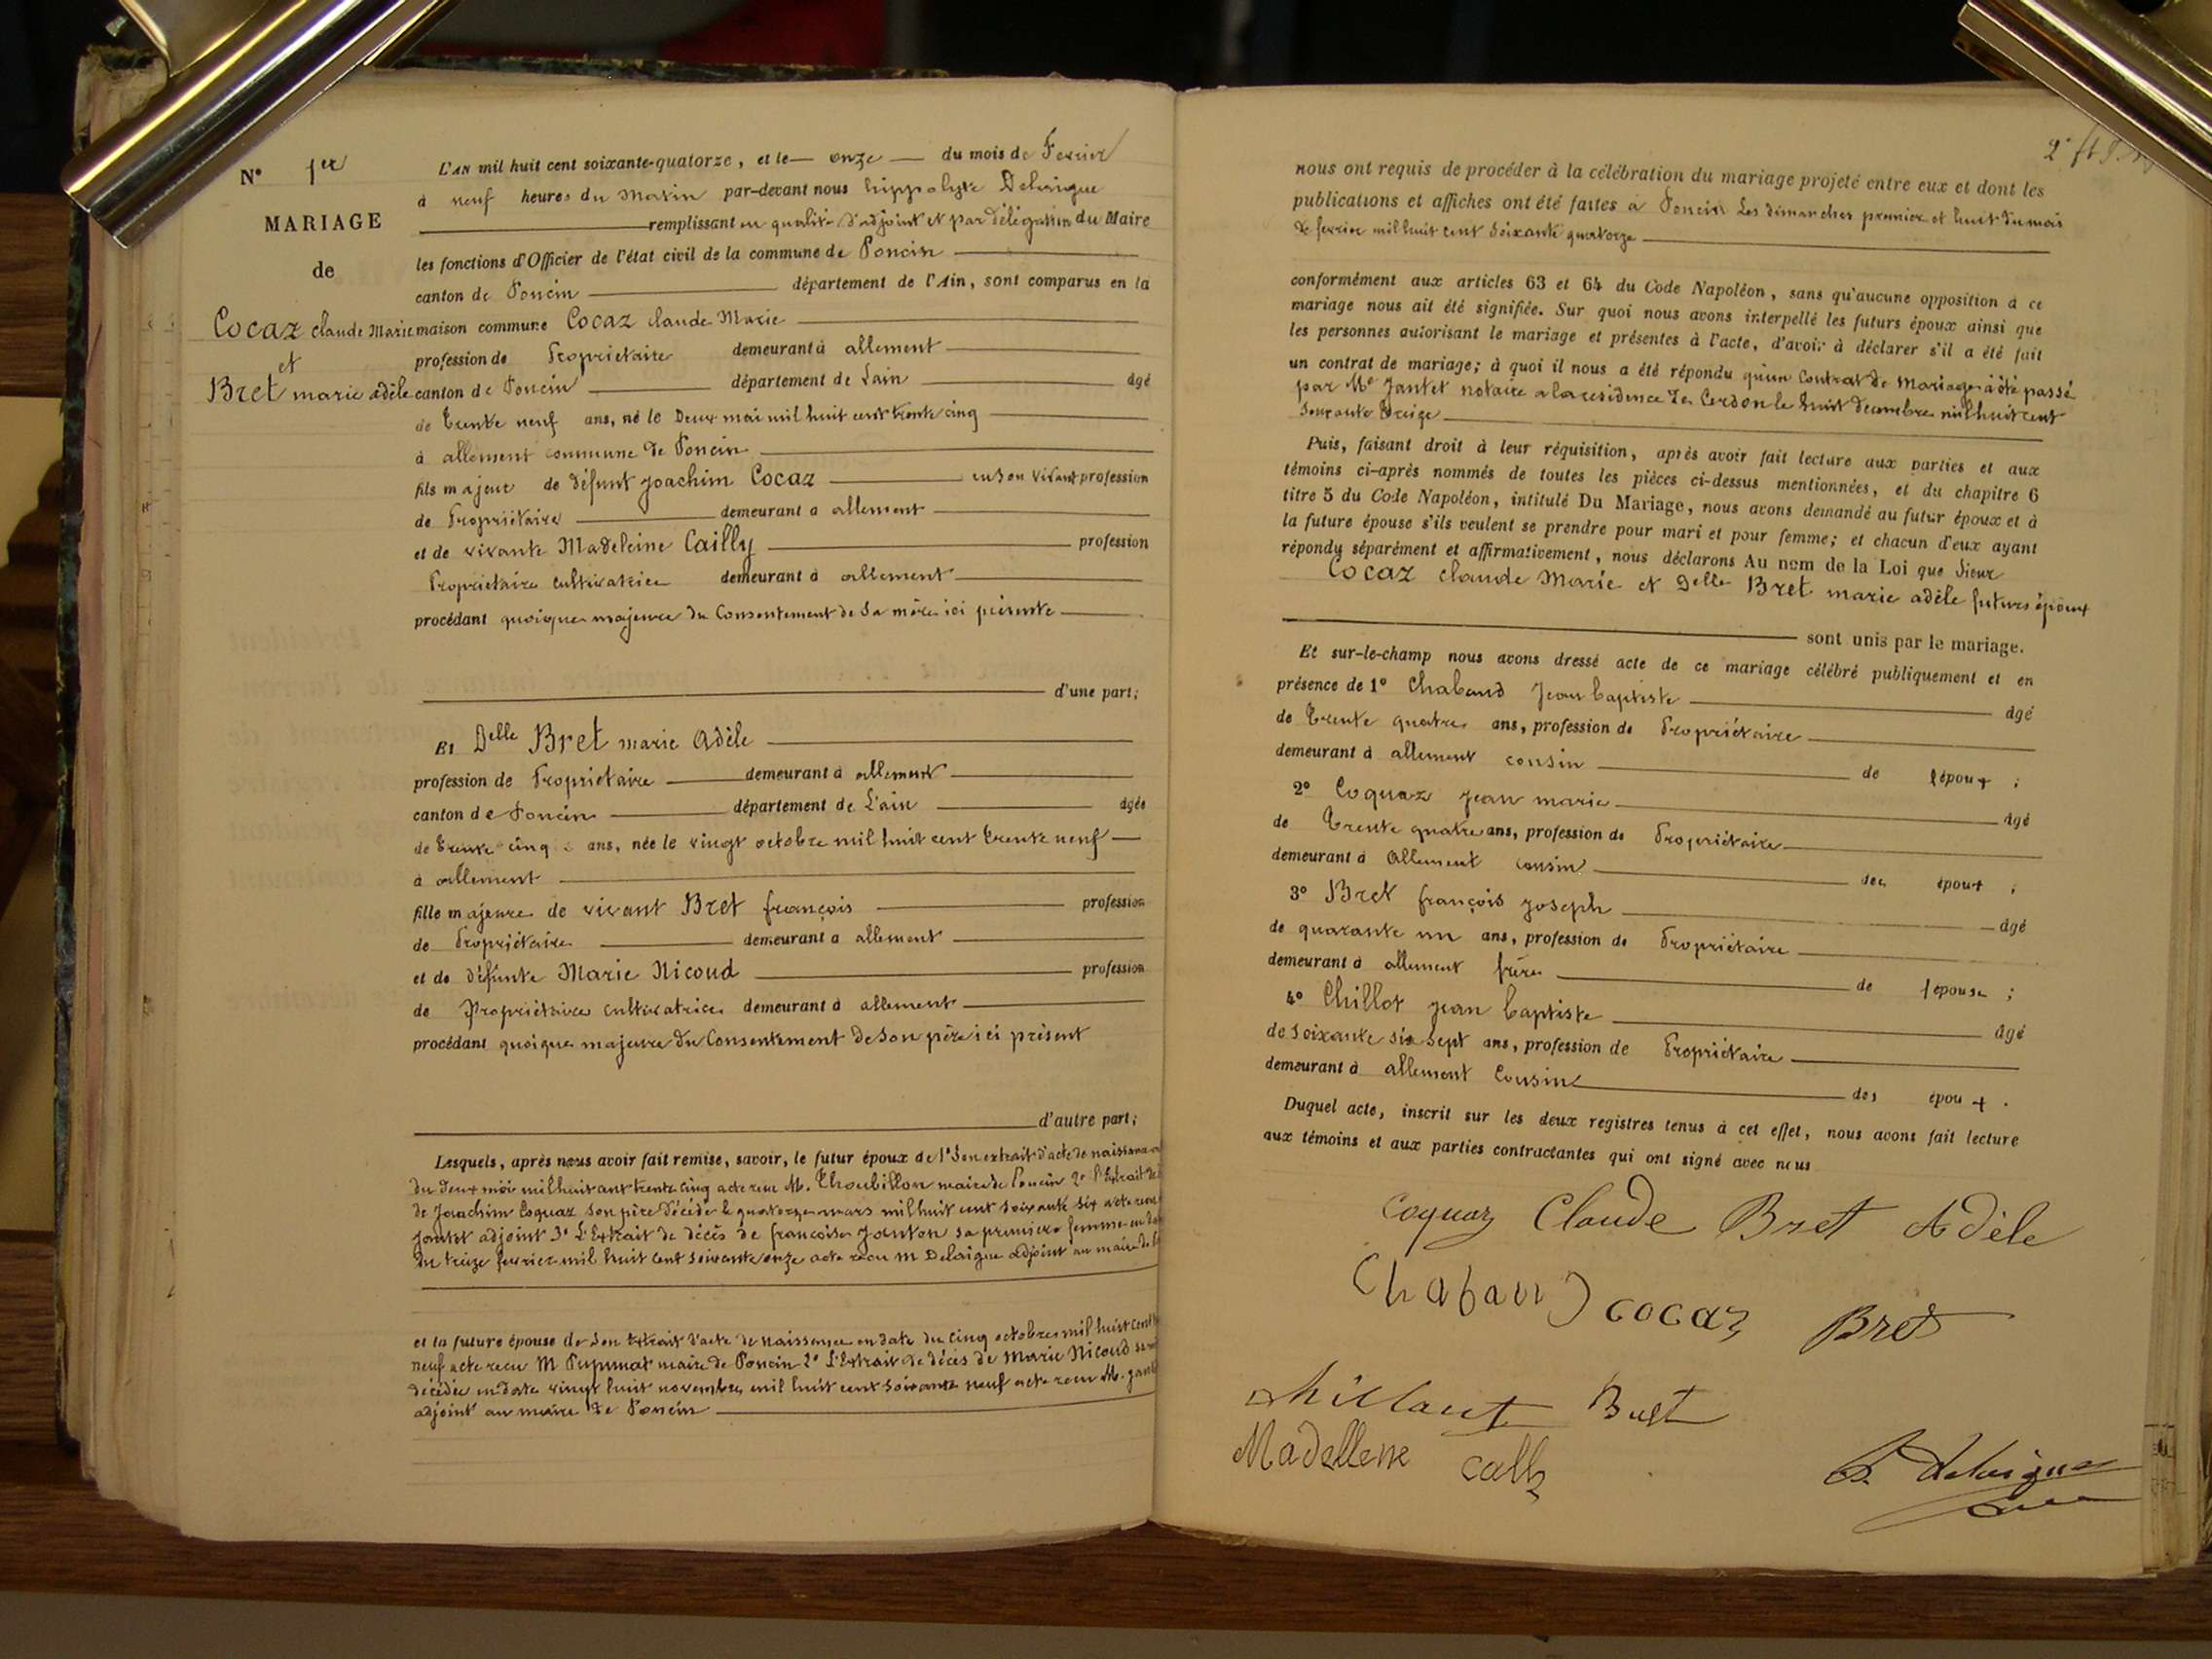 N° 1er
MARIAGE
de
Cocaz claude Marie
et
Bret marie adèle
L'AN mil huit cent soixante-quatorze, et le onze du mois de Fevrier
à neuf heures du Matin par-devant nous hippolyte Delaigue
remplissant en qualité d'adjoint et par délégation du Maire
les fonctions d'Officier de l'état civil de la commune de Poncin
canton de Poncin département de l'Ain, sont comparus en la
maison commune Cocaz claude Marie
profession de Propriétaire demeurant à allement
canton de Poncin département de Lain âgé
de trente neuf ans, né le Deux mai mil huit cent trente cinq
à allement commune de Poncin
fils majeur de défunt joachim Cocaz en son vivant profession
de Propriétaire demeurant à allement
et de vivante Madeleine Cailly profession
Propriétaire cultivatrice demeurant à allement
procédant quoique majeure du Consentement de sa mère ici présente
d'une part;
Et Delle Bret marie Adèle
profession de Propriétaire demeurant à allement
canton de Poncin département de L'ain âgée
de trente cinq ans, née le vingt octobre mil huit cent trente neuf
à allement
fille majeure de vivant Bret françois profession
de Propriétaire demeurant à allement
et de défunte Marie Nicoud profession
de Propriétaire cultivatrice demeurant à allement
procédant quoique majeure du Consentement de son père ici présent
d'autre part;
Lesquels, après nous avoir fait remise, savoir, le futur époux de 1° Son extrait d'acte de naissance
du deux mai mil huit cent trente cinq acte reçu M. Thoubillon maire de Poncin 2° l'Extrait de
de Joachim Coquaz son père décédé le quatorze mars mil huit cent soixante six acte reçu
jantet adjoint 3° L'Extrait de décès de françoise Janton sa première femme en
du treize fevrier mil huit cent soixante onze acte reçu M Delaigue adjoint au maire de
et la future épouse de Son Extrait d'acte de naissance en date du cinq octobre mil huit cent
neuf acte reçu M Pupunat maire de Poncin 2° L'Extrait de décès de Marie Nicoud
décédée en date vingt huit novembre mil huit cent soixante neuf acte reçu M.
adjoint au maire de Poncin
2°
nous ont requis de procéder à la célébration du mariage projeté entre eux et dont les
publications et affiches ont été faites à Poncin Les dimanches premier et huit du mois
de fevrier mil huit cent soixante quatorze
conformément aux articles 63 et 64 du Code Napoléon, sans qu'aucune opposition à ce
mariage nous ait été signifiée. Sur quoi nous avons interpellé les futurs époux ainsi que
les personnes autorisant le mariage et présentes à l'acte, d'avoir à déclarer s'il a été fait
un contrat de mariage; à quoi il nous a été répondu qu'un Contrat de Mariage a été passé
par Me Jantet notaire a la residence de Cerdon le huit decembre mil huit cent
soixante treize
Puis, faisant droit à leur réquisition, après avoir fait lecture aux parties et aux
témoins ci-après nommés de toutes les pièces ci-dessus mentionnées, et du chapitre 6
titre 5 du Code Napoléon, intitulé Du Mariage, nous avons demandé au futur époux et à
la future épouse s'ils veulent se prendre pour mari et pour femme; et chacun d'eux ayant
répondu séparément et affirmativement, nous déclarons Au nom de la Loi que Sieur
Cocaz claude Marie et Delle Bret marie adèle futurs époux
sont unis par le mariage.
Et sur-le-champ nous avons dressé acte de ce mariage célébré publiquement et en
présence de 1° Chabaud Jean baptiste âgé
de trente quatre ans, profession de Propriétaire
demeurant à allement cousin de lépoux ;
2° Coquaz jean marie âgé
de trente quatre ans, profession de Propriétaire
demeurant à Allement cousin des époux ;
3° Bret françois joseph âgé
de quarante un ans, profession de Propriétaire
demeurant à allement frère de lépouse ;
4° Chillot jean baptiste âgé
de soixante six sept ans, profession de Propriétaire
demeurant à allement Cousin des époux .
Duquel acte, inscrit sur les deux registres tenus à cet effet, nous avons fait lecture
aux témoins et aux parties contractantes qui ont signé avec nous
Coquaz Claude Bret Adèle
Chabaud cocaz Bret
Bret
Madellene
Delaigue